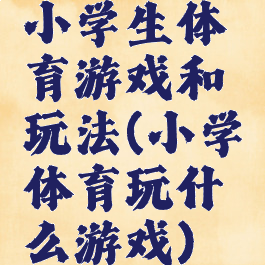 小学生体
育游戏和
玩法(小学
体育玩什
么游戏)